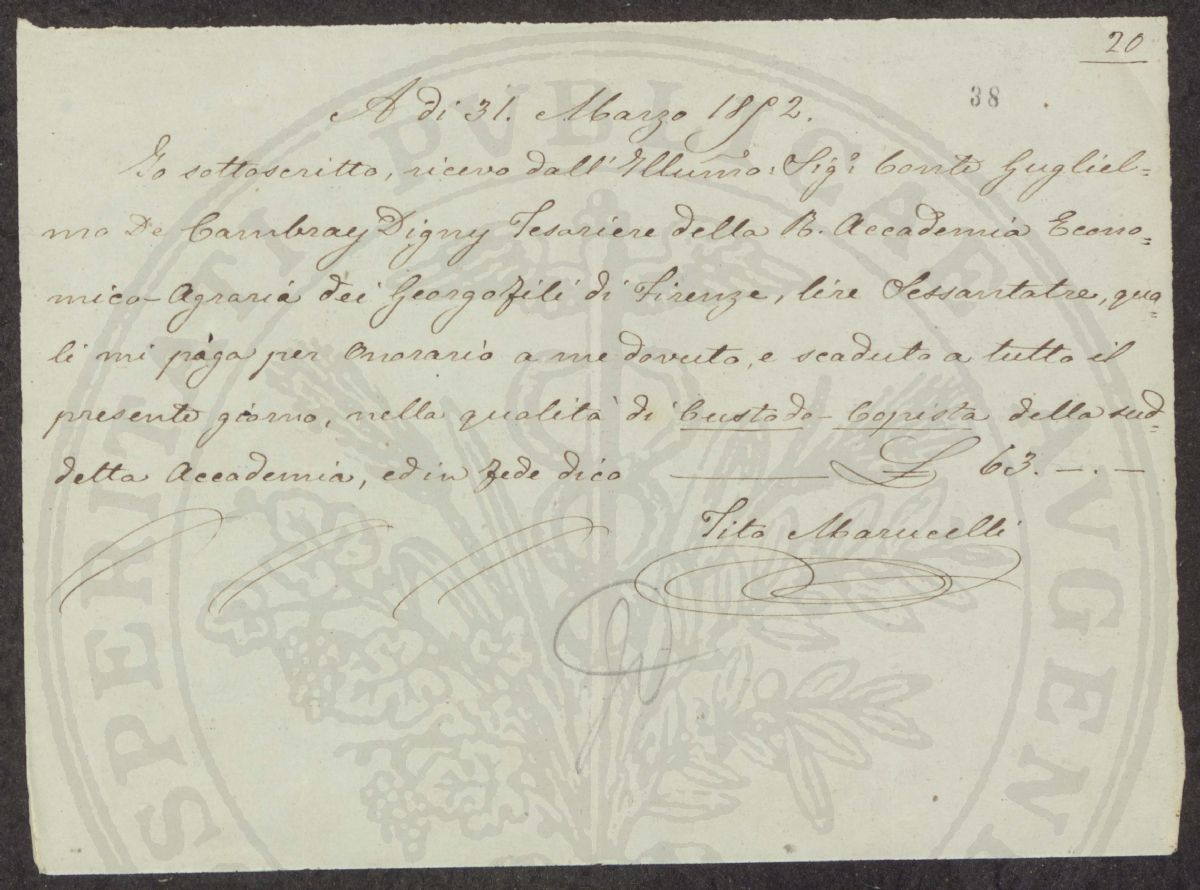 20
38
A dì 31. Marzo 1852.
Io sottoscritto, ricevo dall'Illumo: Sig: Conte Gugliel=
mo De Cambray Digny Tesoriere della R. Accademia Econo=
mico-Agraria dei Georgofili di Firenze, lire Sessantatre, qua=
li mi paga per Onorario a me dovuto, e scaduto a tutto il
presente giorno, nella qualità di Custode-Copista della sud=
detta Accademia, ed in fede dico £ 63.-.-
Tito Marucelli
PROSPERITATI PVBLICAE AVGENDAE